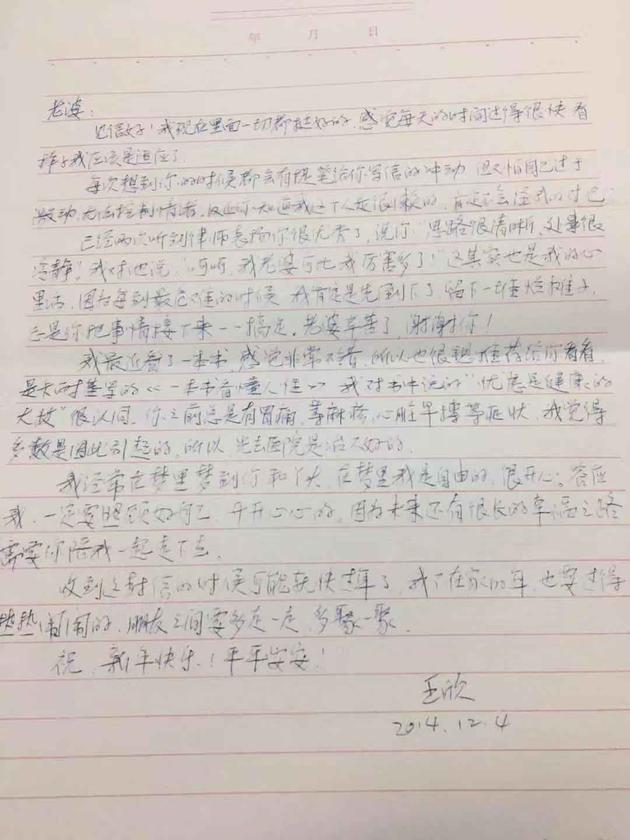 年 月 日
老婆：
见信好！我现在里面一切都挺好的，感觉每天的时间过得很快，看
样子我应该是适应了。
每次想到你的时候都会有提笔给你写信的冲动，但又怕自己过于
激动，无法控制情绪，
已经两次听到律师表扬你很优秀了，说你"思路很清晰，处事很
冷静"，我对他说："呵呵，我老婆可比我厉害多了！"这其实也是我的心
里话，因为每到最困难的时候，我肯定是先倒下了，留下一堆烂摊子，
总是你把事情接下来一一搞定，老婆辛苦了，谢谢你！
我最近看了一本书，感觉非常不错，所以也很想推荐给你看看，
是卡耐基写的《一本书看懂人性》，我对书中说的"忧虑是健康的
大敌"很认同，你之前总是有胃痛，荨麻疹，心脏早搏等症状，我觉得
多数是因此引起的，所以，光去医院是治不好的。
我经常在梦里梦到你和丫头，在梦里我是自由的，很开心；答应
我，一定要照顾好自己，开开心心的，因为未来还有很长的幸福之路
需要你陪我一起走下去。
收到这封信的时候可能就快过年了，我不在家的年，也要过得
热热闹闹的，朋友之间要多走一走，多聚一聚。
祝：新年快乐！平平安安！
王欣
2014.12.4